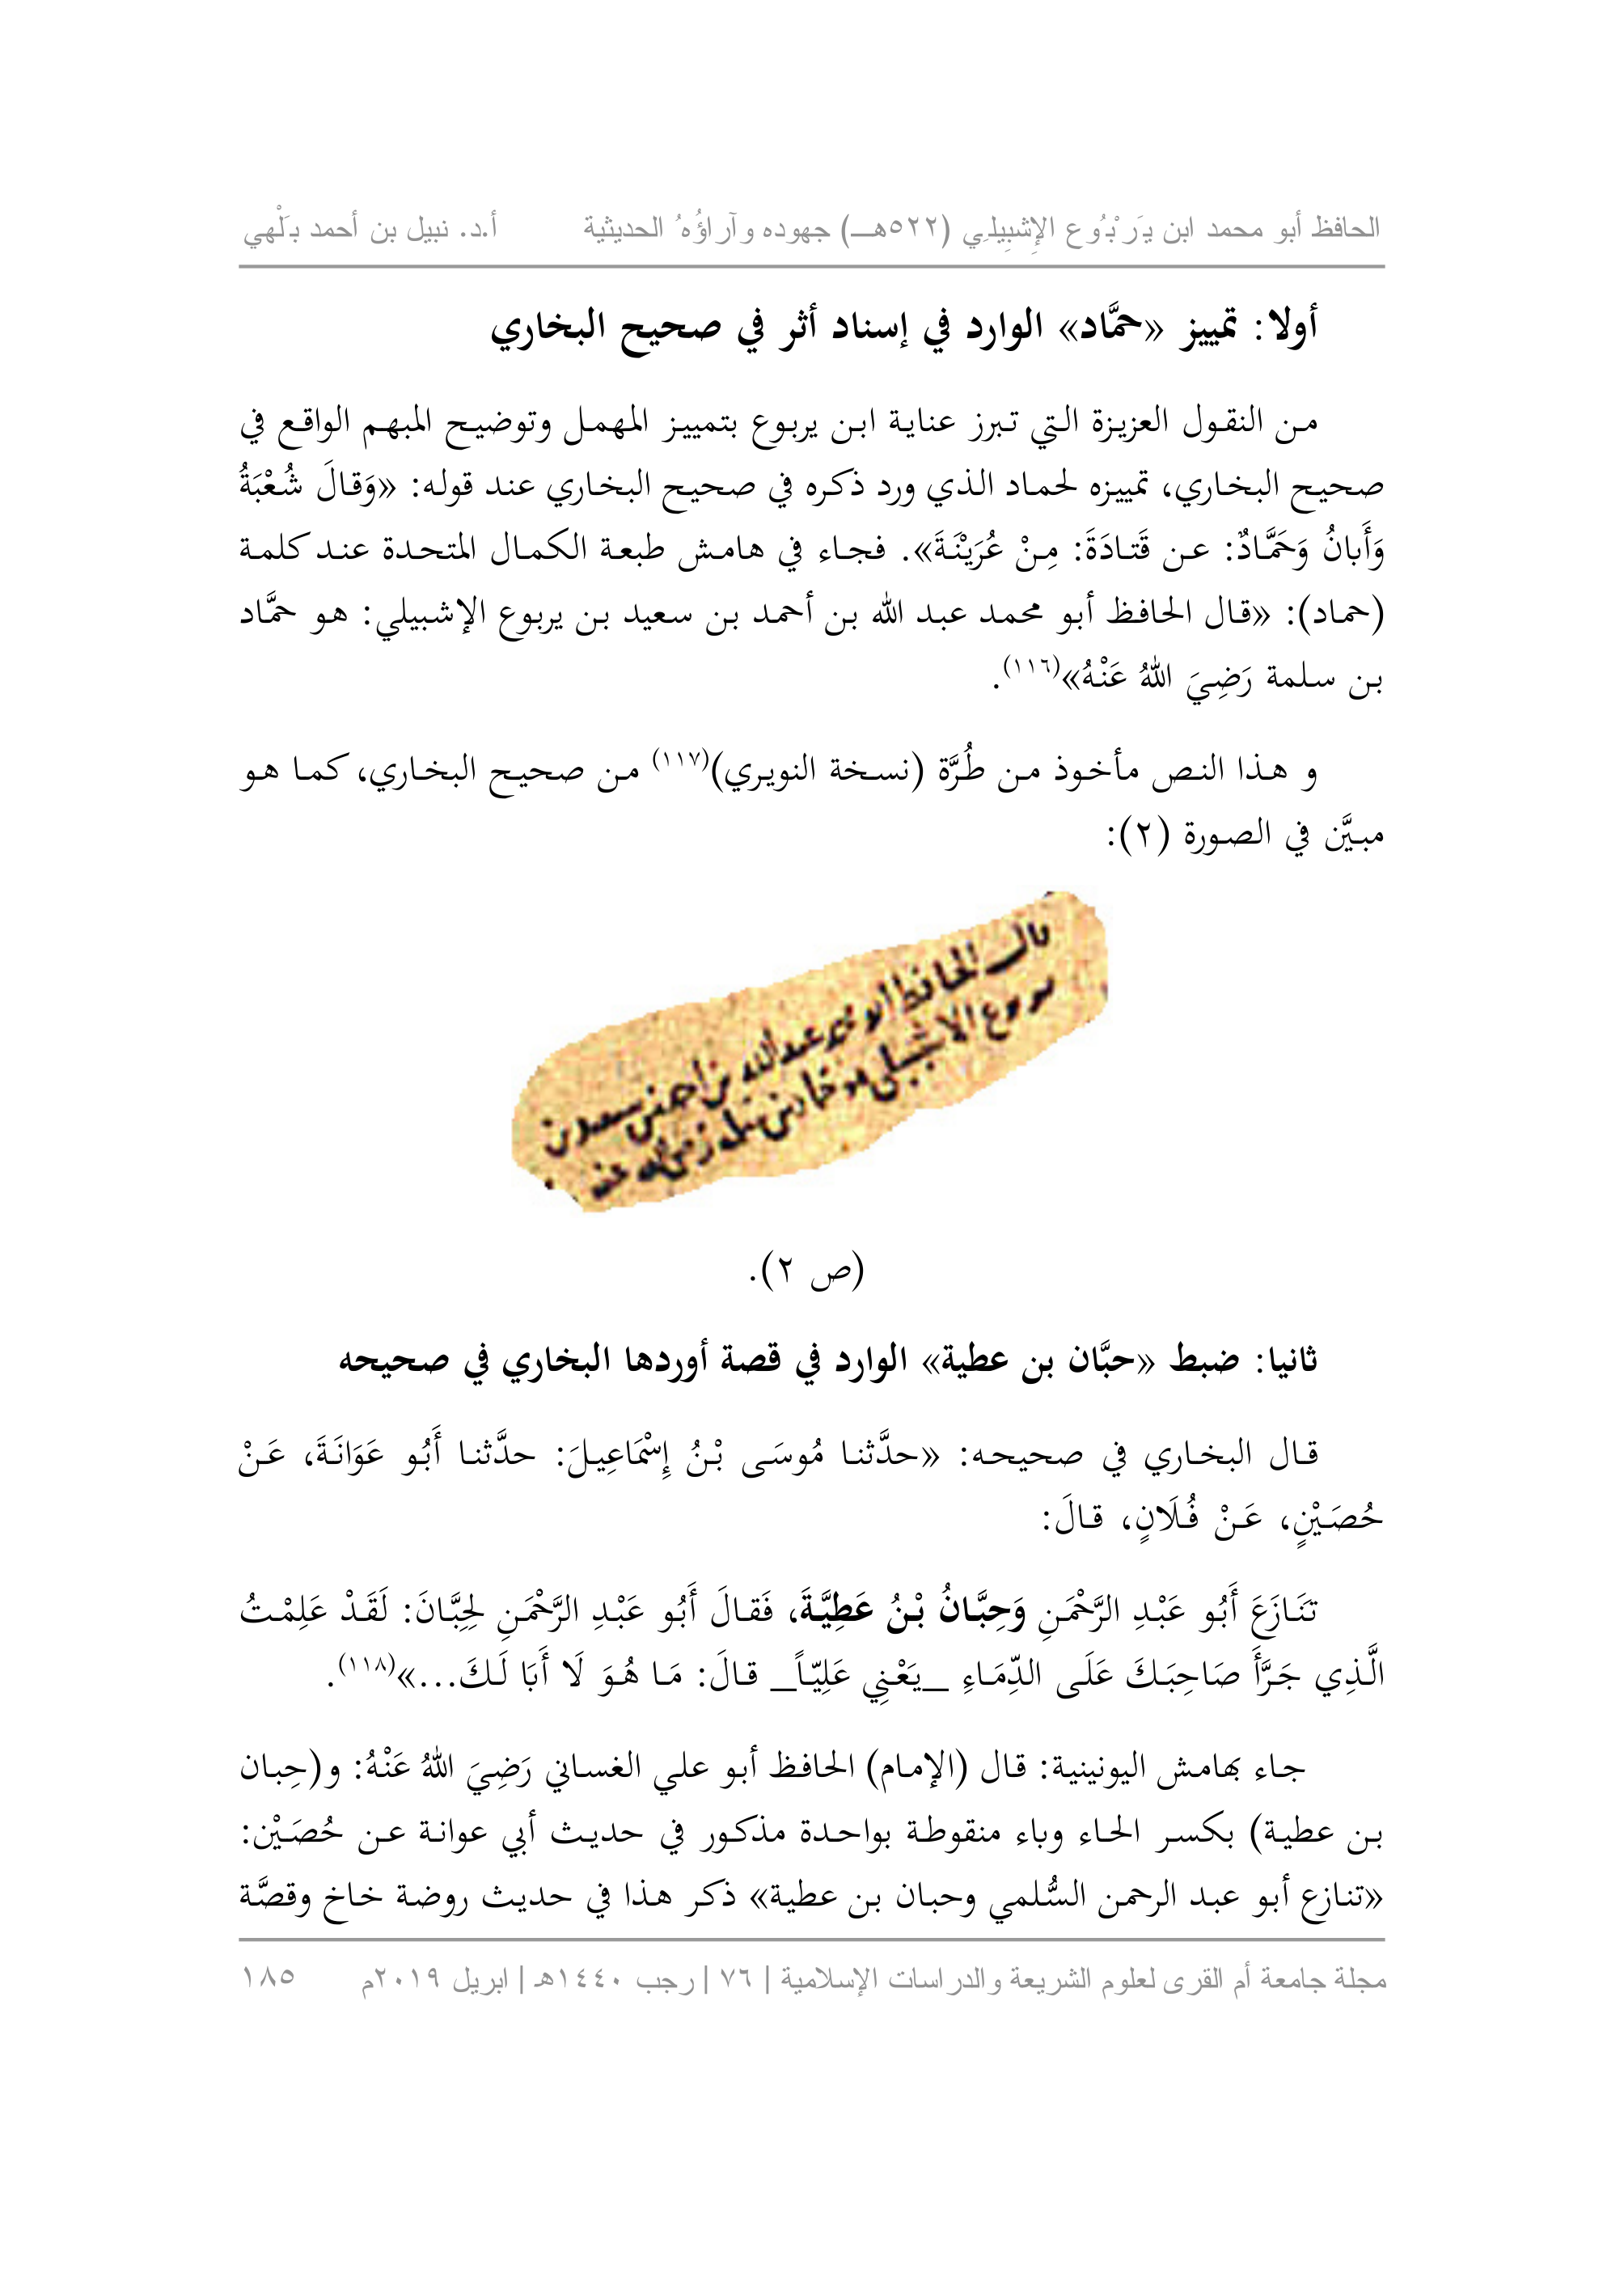 الحافظ أبو محمد ابن يَرْبُوع الإِشبِيلِي (٥٢٢هـ) جهوده وآراؤُهُ الحديثية أ.د. نبيل بن أحمد بَلْهي
أولا: تمييز «حمَّاد» الوارد في إسناد أثر في صحيح البخاري
من النقول العزيزة التي تبرز عناية ابن يربوع بتمييز المهمل وتوضيح المبهم الواقع في
صحيح البخاري، تمييزه لحماد الذي ورد ذكره في صحيح البخاري عند قوله: «وَقالَ شُعْبَةُ
وَأَبانُ وَحَمَّادٌ: عن قَتادَةَ: مِنْ عُرَيْنَةَ». فجاء في هامش طبعة الكمال المتحدة عند كلمة
(حماد): «قال الحافظ أبو محمد عبد الله بن أحمد بن سعيد بن يربوع الإشبيلي: هو حمَّاد
بن سلمة رَضِيَ اللهُ عَنْهُ»(١١٦).
و هذا النص مأخوذ من طُرَّة (نسخة النويري)(١١٧) من صحيح البخاري، كما هو
مبيَّن في الصورة (٢):
قال الحافظ ابو محمد عبد الله بن احمد بن سعيد بن
يربوع الاشبيلي هو حماد بن سلمة رضي الله عنه
(ص ٢).
ثانيا: ضبط «حبَّان بن عطية» الوارد في قصة أوردها البخاري في صحيحه
قال البخاري في صحيحه: «حدَّثنا مُوسَى بْنُ إِسْمَاعِيلَ: حدَّثنا أَبُو عَوَانَةَ، عَنْ
حُصَيْنٍ، عَنْ فُلَانٍ، قالَ:
تَنَازَعَ أَبُو عَبْدِ الرَّحْمَنِ وَحِبَّانُ بْنُ عَطِيَّةَ، فَقالَ أَبُو عَبْدِ الرَّحْمَنِ لِحِبَّانَ: لَقَدْ عَلِمْتُ
الَّذِي جَرَّأَ صَاحِبَكَ عَلَى الدِّمَاءِ _يَعْنِي عَلِيّاً_ قالَ: مَا هُوَ لَا أَبَا لَكَ...»(١١٨).
جاء بهامش اليونينية: قال (الإمام) الحافظ أبو علي الغساني رَضِيَ اللهُ عَنْهُ: و(حِبان
بن عطية) بكسر الحاء وباء منقوطة بواحدة مذكور في حديث أبي عوانة عن حُصَيْن:
«تنازع أبو عبد الرحمن السُّلمي وحبان بن عطية» ذكر هذا في حديث روضة خاخ وقصَّة
مجلة جامعة أم القرى لعلوم الشريعة والدراسات الإسلامية | ٧٦ | رجب ١٤٤٠هـ | ابريل ٢٠١٩م ١٨٥